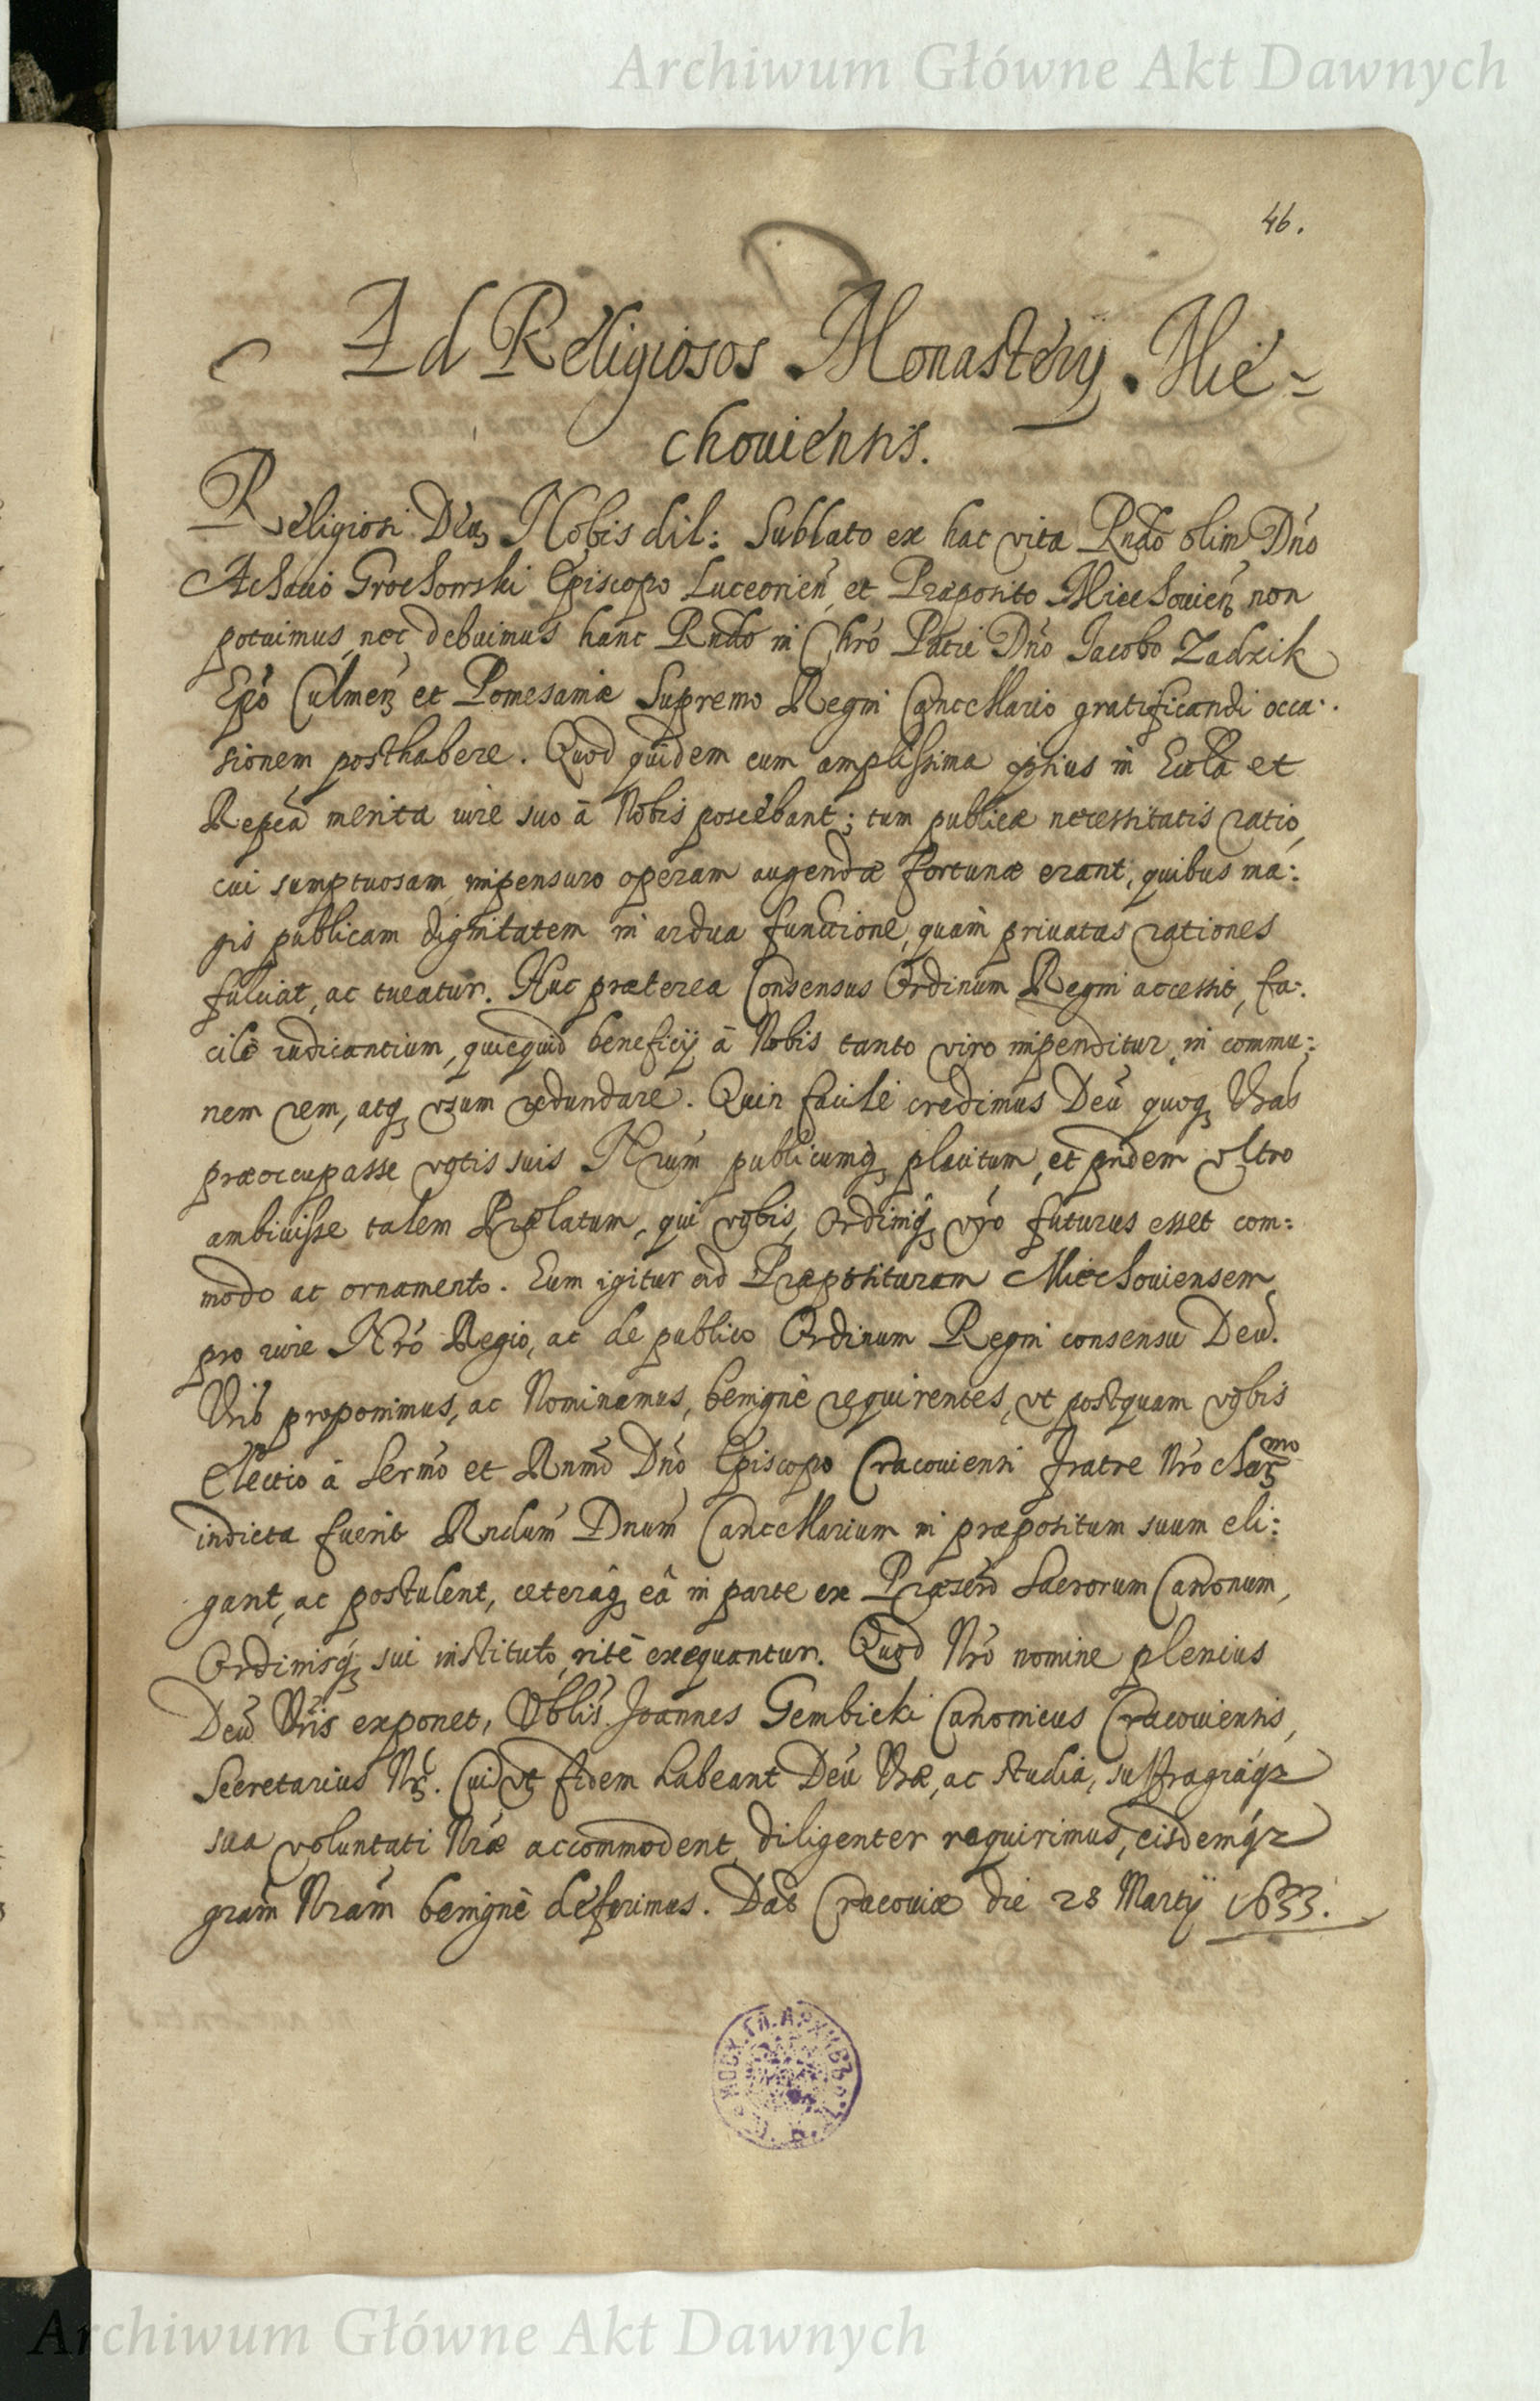 Archiwum Główne Akt Dawnych
46.
Ad Religiosos Monasterij Mie-
chouiensis.
Religiosi Deu, Nobis dil: Sublato ex hac vita Rndo olim Dno
Achatio Grochowski Episcopo Luceorien, et Præposito Miechouien, non
potuimus, nec debuimus hanc Rndo in Chro Patri Dno Iacobo Zadzik
Epo Culmen et Pomesaniæ Supremo Regni Cancellario gratificandi occa:
sionem posthabere. Quod quidem cum amplissima ipsius in Eccla et
Repca merita iure suo à Nobis poscebant; tum publicæ necessitatis ratio,
cui sumptuosam impensuro operam augendæ fortunæ erant, quibus ma:
gis publicam dignitatem in ardua functione, quam priuatas rationes
fulciat, ac tueatur. Huc præterea Consensus Ordinum Regni accessit, fa:
cilè iudicantium, quicquid beneficij à Nobis tanto viro impenditur, in commu:
nem rem, atq vsum redundare. Quin facile credimus Deu quoq Vras
præoccupasse votis suis Nrum publicumq placitum, et pridem vltro
ambiuisse talem Prælatum, qui vobis, Ordiniq vro futurus esset com:
modo ac ornamento. Eum igitur ad Præposituram Miechouiensem
pro iure Nro Regio, ac de publico Ordinum Regni consensu Deu.
Vris proponimus, ac Nominamus, benignè requirentes, vt postquam vobis
Electio à Sermo et Rnmo Dno Episcopo Cracouiensi Fratre Nro char mo
indicta fuerit Rndum Dnum Cancellarium in præpositum suum eli:
gant, ac postulent, ceteraq eâ in parte ex Præscro Sacrorum Canonum,
Ordinisq sui instituto, ritè exequantur. Quod Nro nomine plenius
Deu Vris exponet, Vblis Joannes Gembicki Canonicus Cracouiensis,
Secretarius Nr. Cui vt fidem habeant Deu Vræ, ac studia, suffragiaq
sua voluntati Nræ accommodent, diligenter requirimus, eisdemq
gram Nram benignè deferimus. Dat Cracouiæ die 28 Martij 1633.
МОСК. ГЛ. АРХИВЪ
Archiwum Główne Akt Dawnych